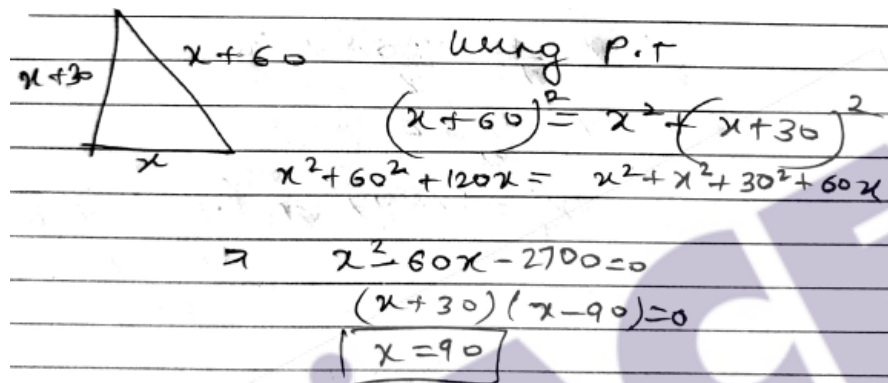 x+30
x+60
x
Using P.T
(x+60)² = x² + (x+30)²
x²+60²+120x = x²+x²+30²+60x
⇒ x²-60x-2700=0
(x+30)(x-90)=0
x=90